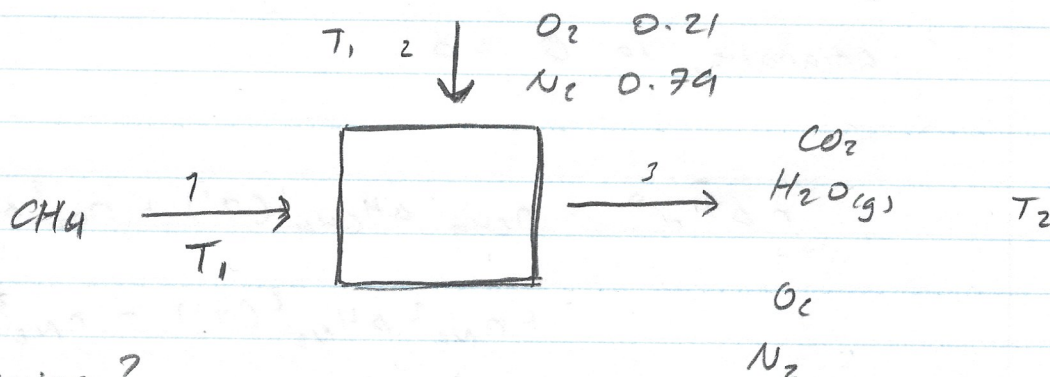 T₁ 2 O₂ 0.21
N₂ 0.79
CH₄ 1 T₁
3
CO₂
H₂O(g) T₂
O₂
N₂
?